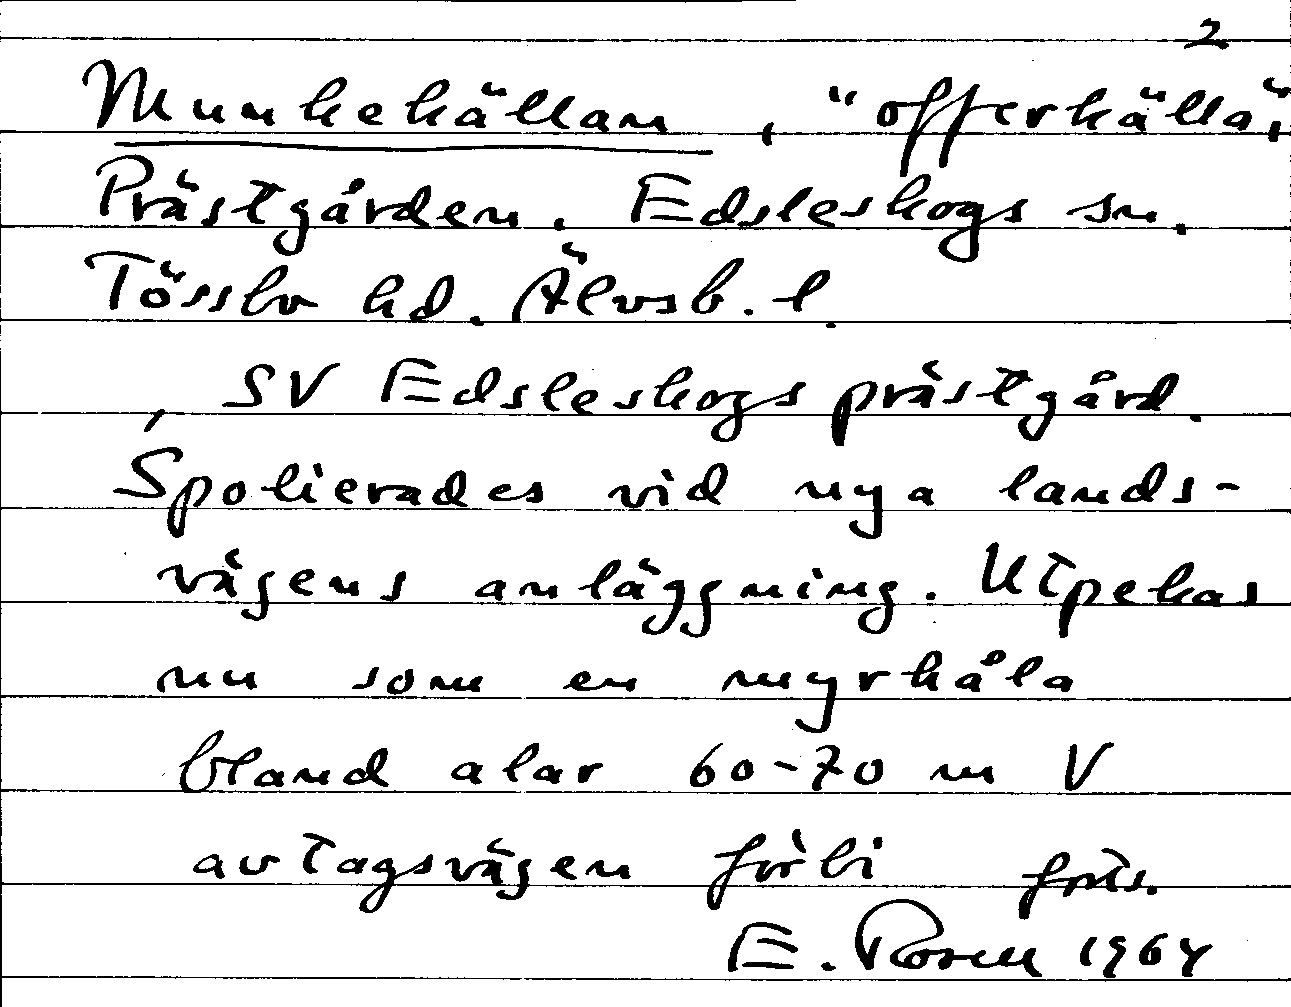 2
Munkekällan, "offerkälla",
Prästgården. Edsleskogs sn.
Tössbo hd. Älvsb. l.
SV Edsleskogs prästgård.
Spolierades vid nya lands-
vägens anläggning. Utpekas
nu som en myrhåla
bland alar 60-70 m V
avtagsvägen förbi forts.
E. Rosen 1964